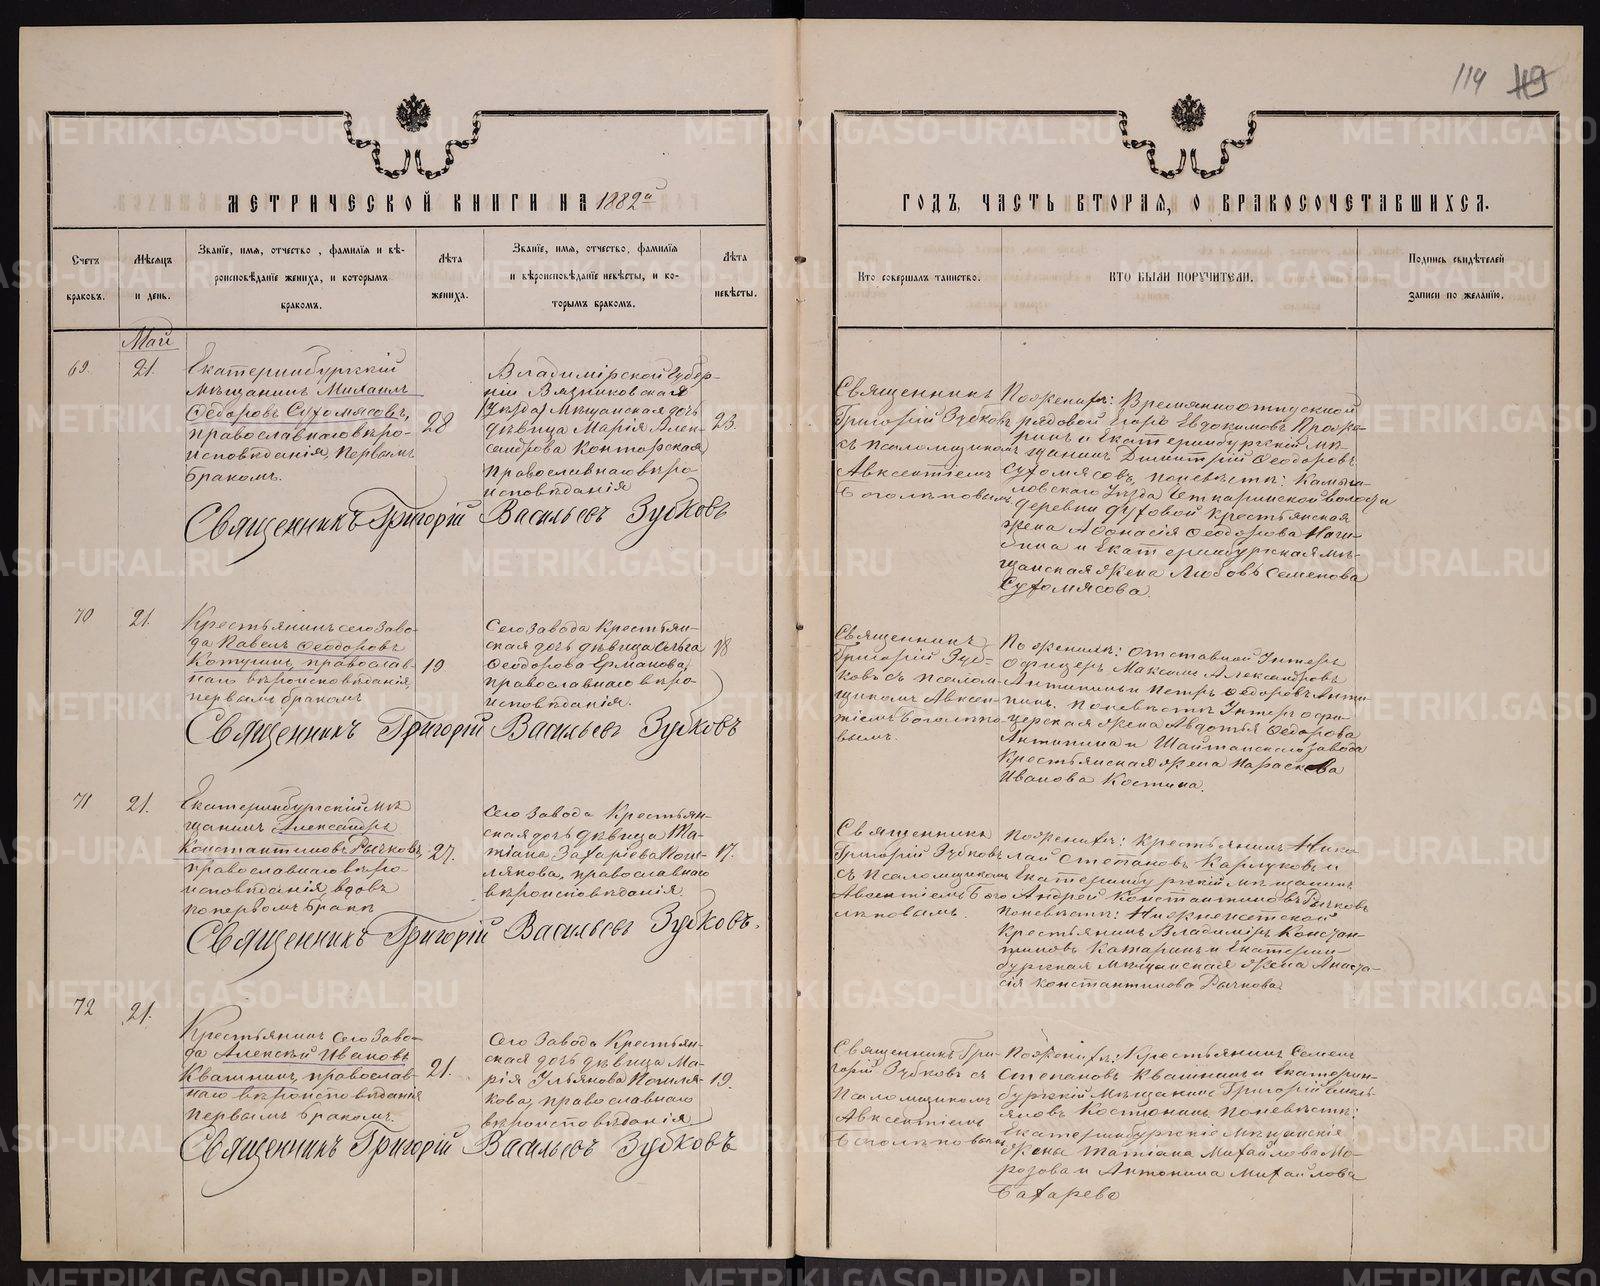 114 119
МЕТРИЧЕСКОЙ КНИГИ НА 1882й
ГОДЪ, ЧАСТЬ ВТОРАЯ, О БРАКОСОЧЕТАВШИХСЯ.
Счетъ
браковъ.
Мѣсяцъ
и день.
Званіе, имя, отчество, фамилія и вѣ-
роисповѣданіе жениха, и которымъ
бракомъ.
Лѣта
жениха.
Званіе, имя, отчество, фамилія
и вѣроисповѣданіе невѣсты, и ко-
торымъ бракомъ.
Лѣта
невѣсты.
Кто совершалъ таинство.
КТО БЫЛИ ПОРУЧИТЕЛИ.
Подпись свидѣтелей
записи по желанію.
Май
69.
21.
Екатеринбургскій
мѣщанинъ Михаилъ
Ѳедоровъ Сухомясовъ,
православнаго вѣро-
исповѣданія, первымъ
бракомъ.
28
Владимірской Губер-
ніи Вязниковская
(Уѣзда) Мѣщанская дочь
дѣвица Марія Алек-
сандрова Конторская
православнаго вѣро
исповѣданія
23.
Священникъ
Григорій Зубковъ
съ псаломщикомъ
Авксентіемъ
Боголѣповымъ
По женихѣ: Временноотпускной
рядовой Егоръ Евдокимовъ
и Екатеринбургскій мѣ-
щанинъ Димитрій Ѳеодоровъ
Сухомясовъ, по невѣстѣ: Камыш-
ловскаго Уѣзда волости
деревни Духовой Крестьянская
жена Аѳонасія Ѳеодорова
и Екатеринбургская мѣ-
щанская жена Любовь Семенова
Сухомясова.
Священникъ Григорій Васильевъ Зубковъ
70
21.
Крестьянинъ сего заво-
да Павелъ Ѳеодоровъ
Котугинъ, православ-
наго вѣроисповѣданія,
первымъ бракомъ
19
Сего завода Крестьян-
ская дочь дѣвица Ольга
Ѳеодорова Ермакова,
православнаго вѣро-
исповѣданія.
18
Священникъ
Григорій Зуб-
ковъ съ псалом-
щикомъ Авксен-
тіемъ Боголѣпо-
вымъ.
По женихѣ: отставной Унтеръ
офицеръ Максимъ Александровъ
Антипинъ и Петръ Ѳедоровъ Анти-
пинъ. По невѣстѣ: Унтеръ офи-
церская жена Авдотья Ѳедорова
Антипина и Шайтанскаго завода
Крестьянская жена Параскева
Иванова Костина.
Священникъ Григорій Васильевъ Зубковъ
71
21.
Екатеринбургскій мѣ
щанинъ Александръ
Константиновъ Рычковъ,
православнаго вѣро-
исповѣданія, вдовъ
по первомъ бракѣ
27.
Сего завода Крестьян-
ская дочь дѣвица Та-
тіана Захаріева Кош-
лякова, православнаго
вѣроисповѣданія
17.
Священникъ
Григорій Зубковъ
съ псаломщикомъ
Авксентіемъ Бого
лѣповымъ.
По женихѣ: Крестьянинъ Нико
лай Степановъ Карлуковъ и
Екатеринбургскій мѣщанинъ
Андрей Константиновъ Рычковъ
По невѣстѣ:
Крестьянинъ Владиміръ Констан-
тиновъ и Екатерин-
бургская мѣщанская жена Анаста-
сія Константинова Рычкова.
Священникъ Григорій Васильевъ Зубковъ.
72
21.
Крестьянинъ сего заво-
да Алексѣй Ивановъ
Квашнинъ, православ-
наго вѣроисповѣданія
первымъ бракомъ.
21.
Сего завода Крестьян-
ская дочь дѣвица Ма-
рія Ульянова Кошля-
кова, православнаго
вѣроисповѣданія
19.
Священникъ Гри-
горій Зубковъ съ
Псаломщикомъ
Авксентіемъ
Боголѣповымъ
По женихѣ: Крестьянинъ Семенъ
Степановъ Квашнинъ и Екатерин-
бургскій Мѣщанинъ Григорій Емель-
яновъ Костюнинъ. По невѣстѣ:
Екатеринбургскіе Мѣщанскія
жены Татіана Михайлова Мо-
розова и Антонина Михайлова
Бахарева
Священникъ Григорій Васильевъ Зубковъ
METRIKI.GASO-URAL.RU